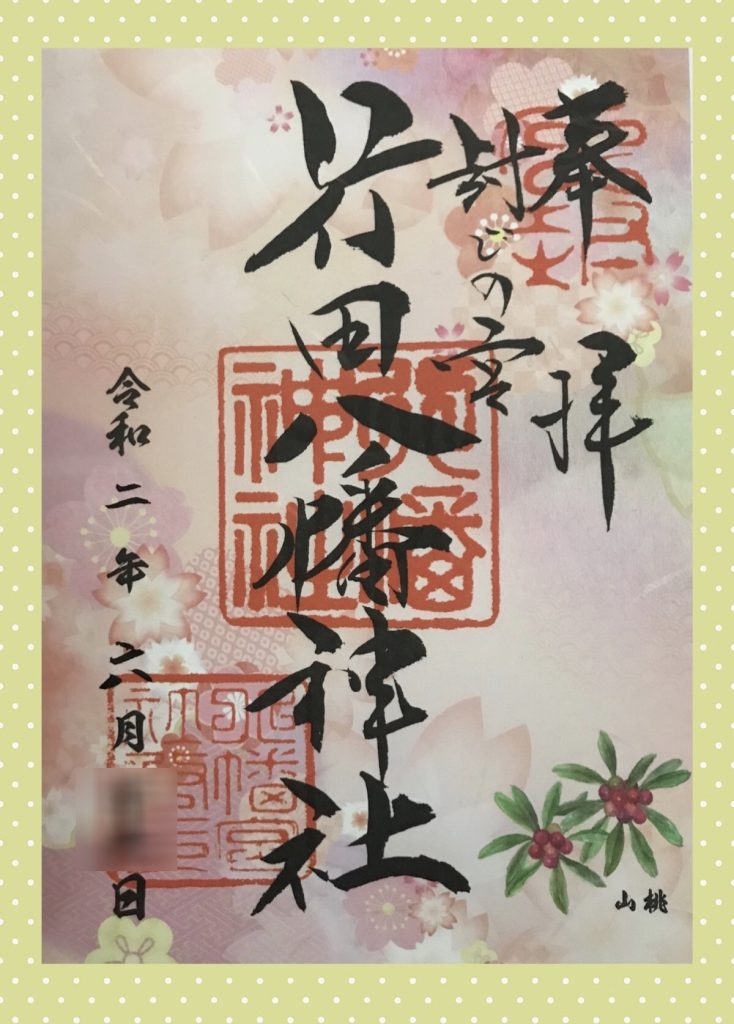 奉拝
封じの宮
行田八幡神社
令和二年六月
日
山桃